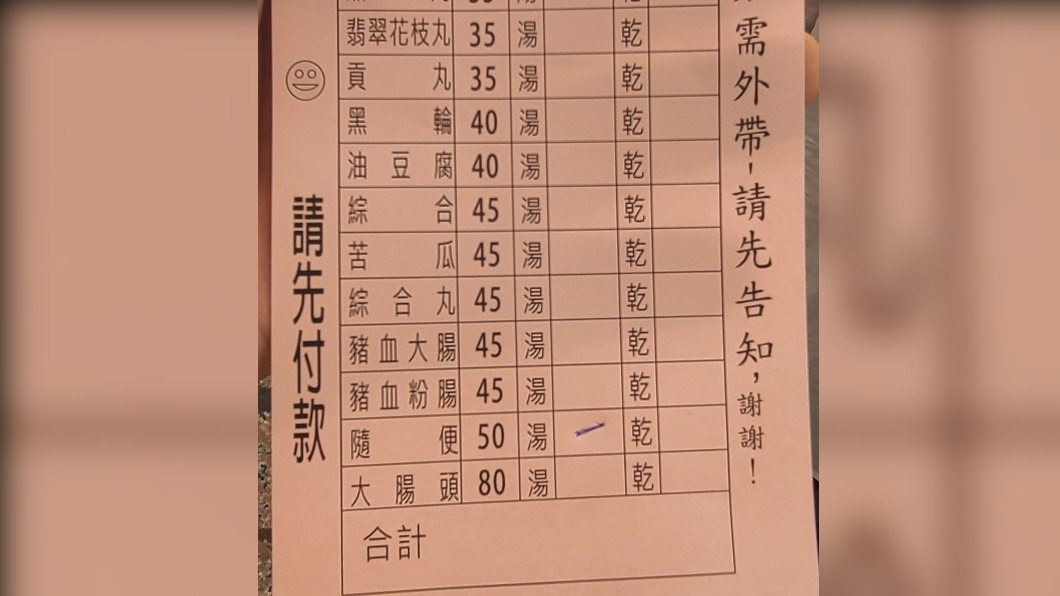 翡翠花枝丸 35 湯 乾
貢丸 35 湯 乾
黑輪 40 湯 乾
油豆腐 40 湯 乾
綜合 45 湯 乾
苦瓜 45 湯 乾
綜合丸 45 湯 乾
豬血大腸 45 湯 乾
豬血粉腸 45 湯 乾
隨便 50 湯 乾
大腸頭 80 湯 乾
合計
請先付款
需外帶，請先告知，謝謝！